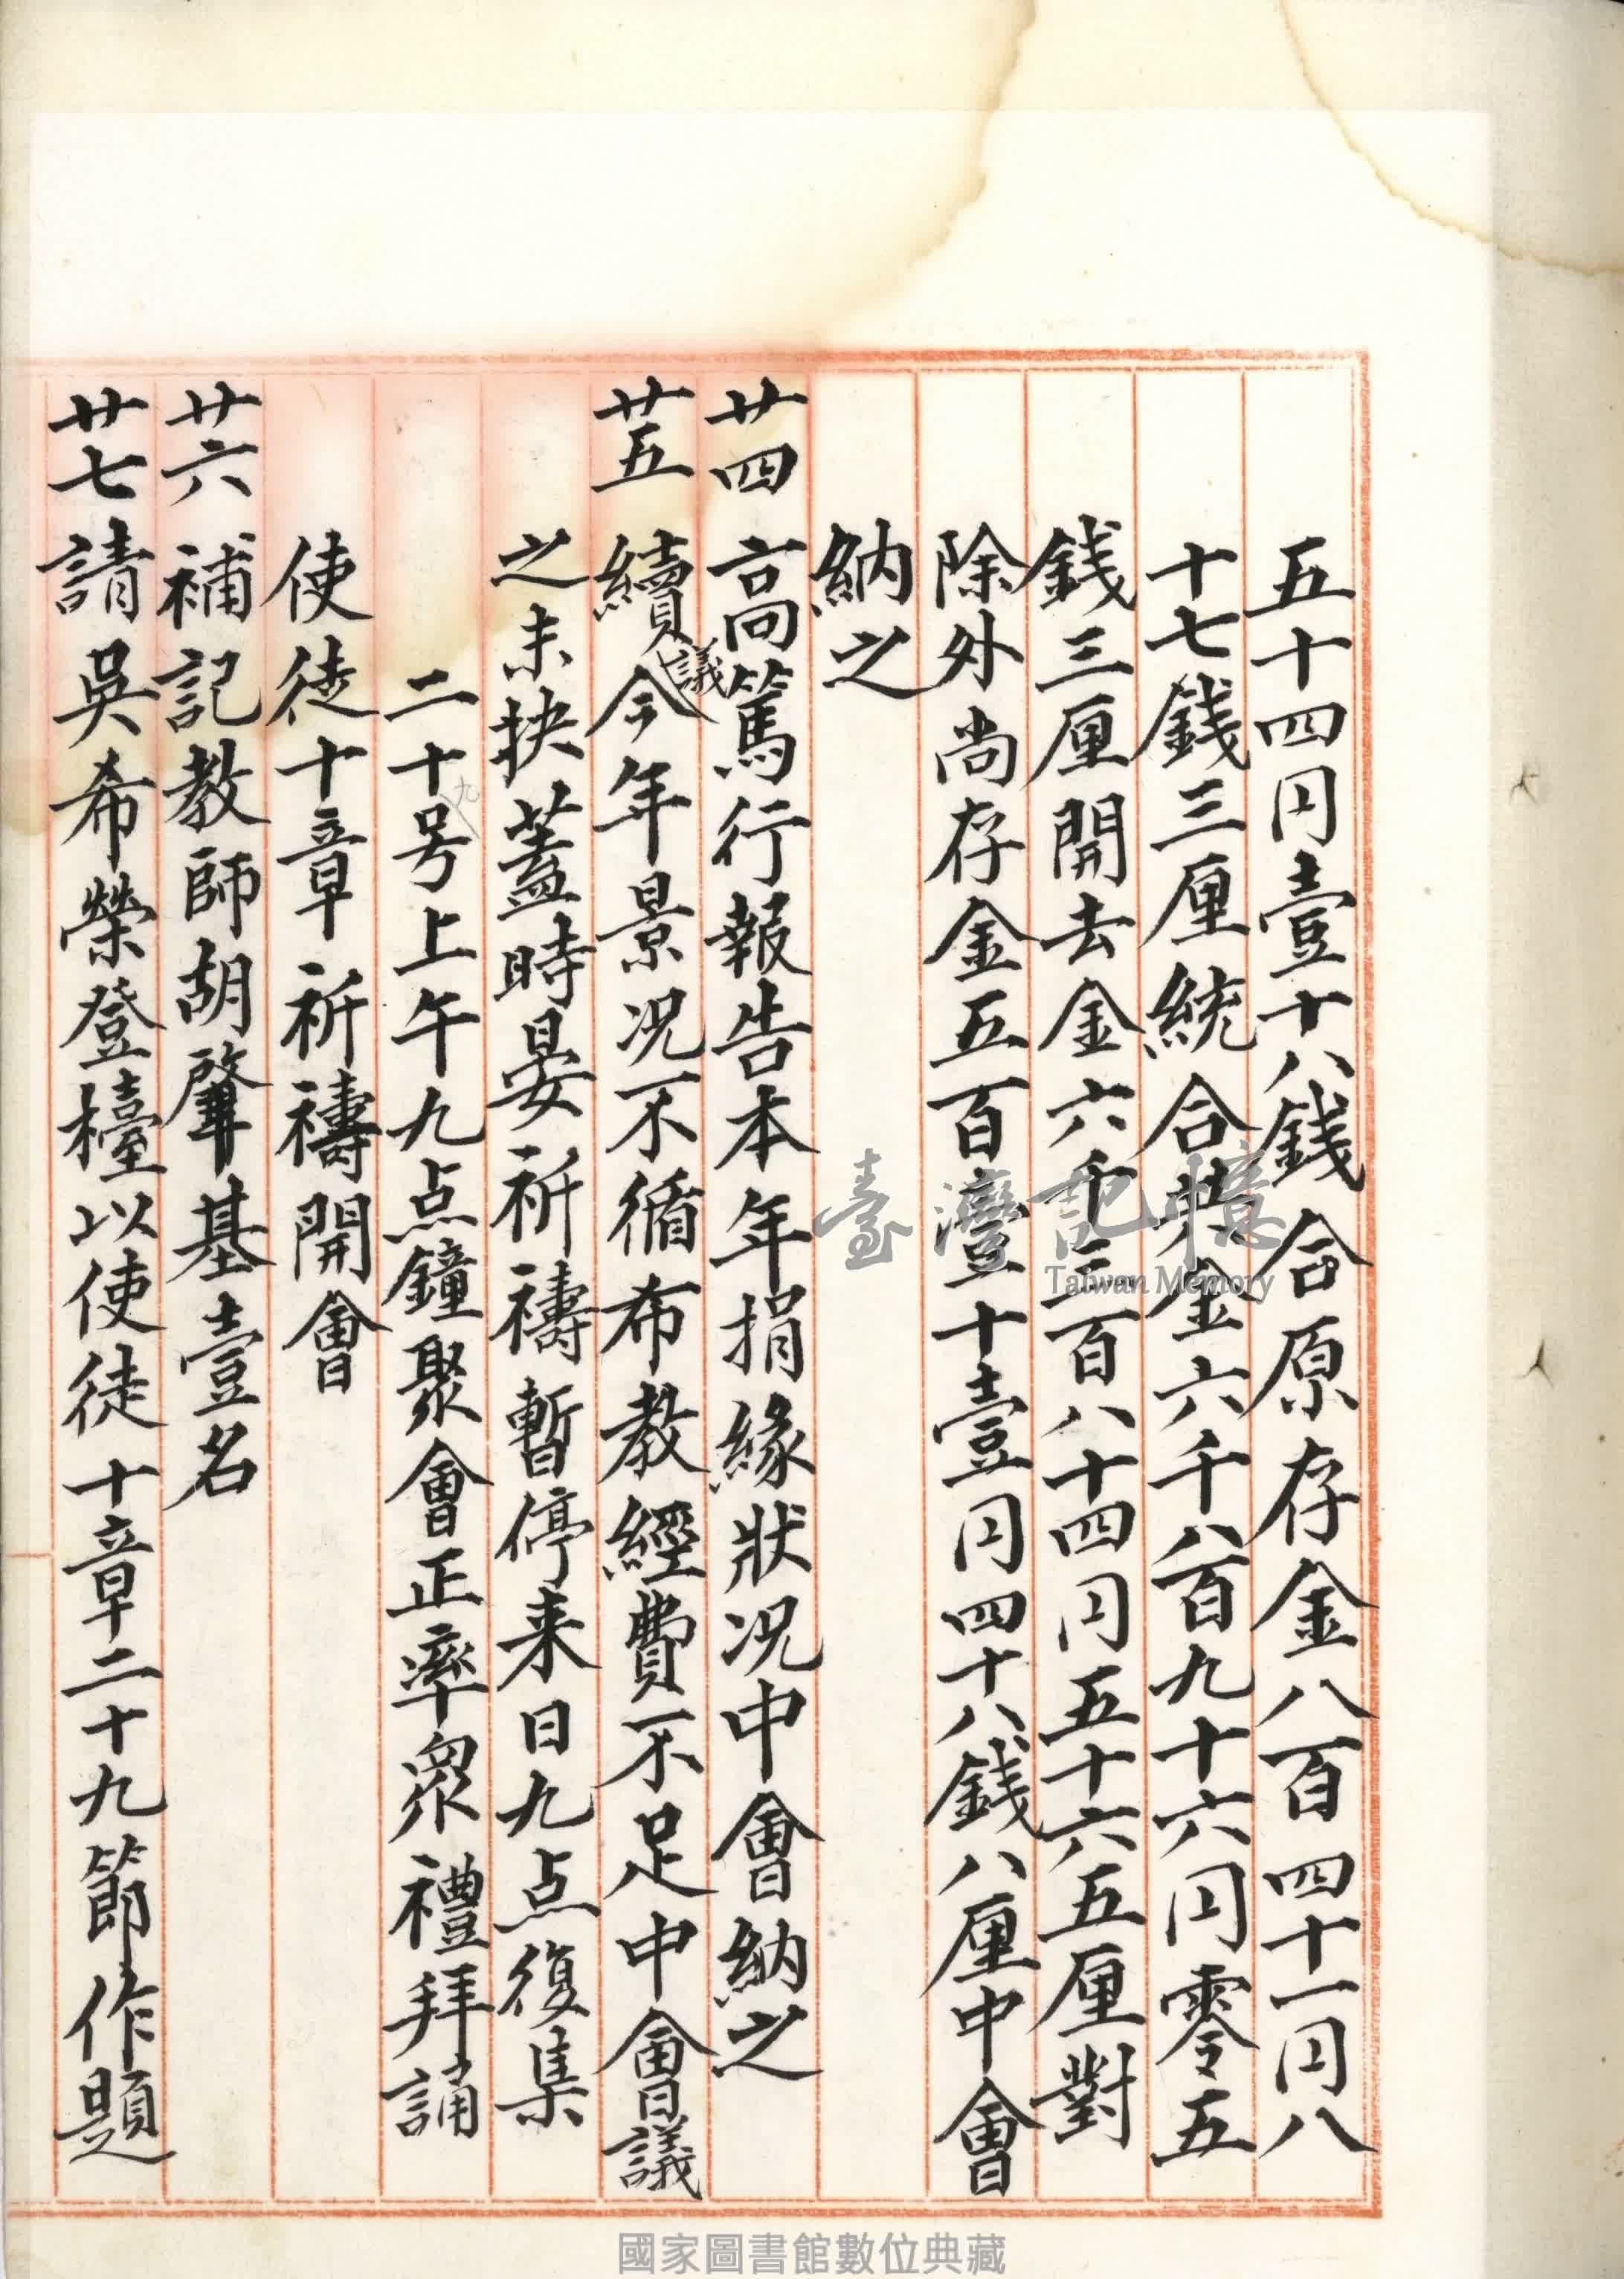 五十四円壹十八錢合原存金八百四十一円八
十七錢三厘統合共金六千八百九十六円零五
錢三厘開去金六千三百八十四円五十六五厘對
除外尚存金五百壹十壹円四十八錢八厘中會
納之
廿四高篤行報告本年捐緣狀况中會納之
廿五續議今年景况不循布教經費不足中會議
之未抉蓋時晏祈禱暫停来日九点復集
二十九号上午九点鐘聚會正率眾禮拜誦
使徒十章祈禱開會
廿六補記教師胡肇基壹名
廿七請吳希榮登檯以使徒十章二十九節作題
臺灣記憶
Taiwan Memory
國家圖書館數位典藏